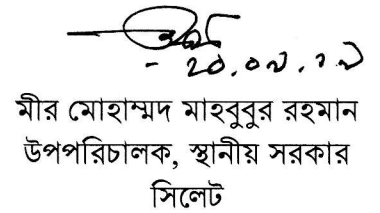 মীর মোহাম্মদ মাহবুবুর রহমান
উপপরিচালক, স্থানীয় সরকার
সিলেট